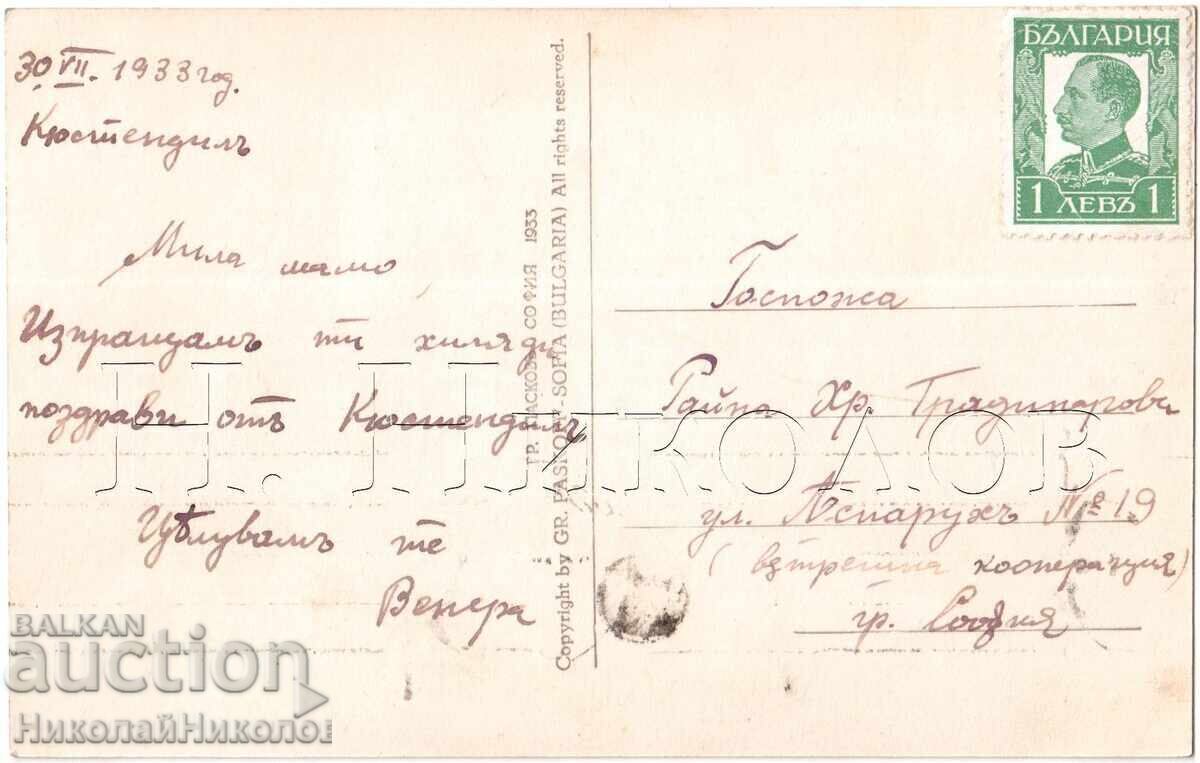 30.VII.1933 год.
Кюстендилъ
Мила мамо,
Изпращамъ ти хиляди
поздрави отъ Кюстендилъ
Цѣлувамъ те
Венера
ГР. ПАСКОВЪ СОФИЯ 1933
Copyright by GR. PASKOFF - SOFIA (BULGARIA) All rights reserved.
БЪЛГАРИЯ
1 ЛЕВЪ 1
Госпожа
Райна Хр. Градинарова
ул. Аспарухъ № 19
(вътрешна кооперация)
гр. София
Н. НИКОЛОВ
BALKAN
auction
НиколайНиколов